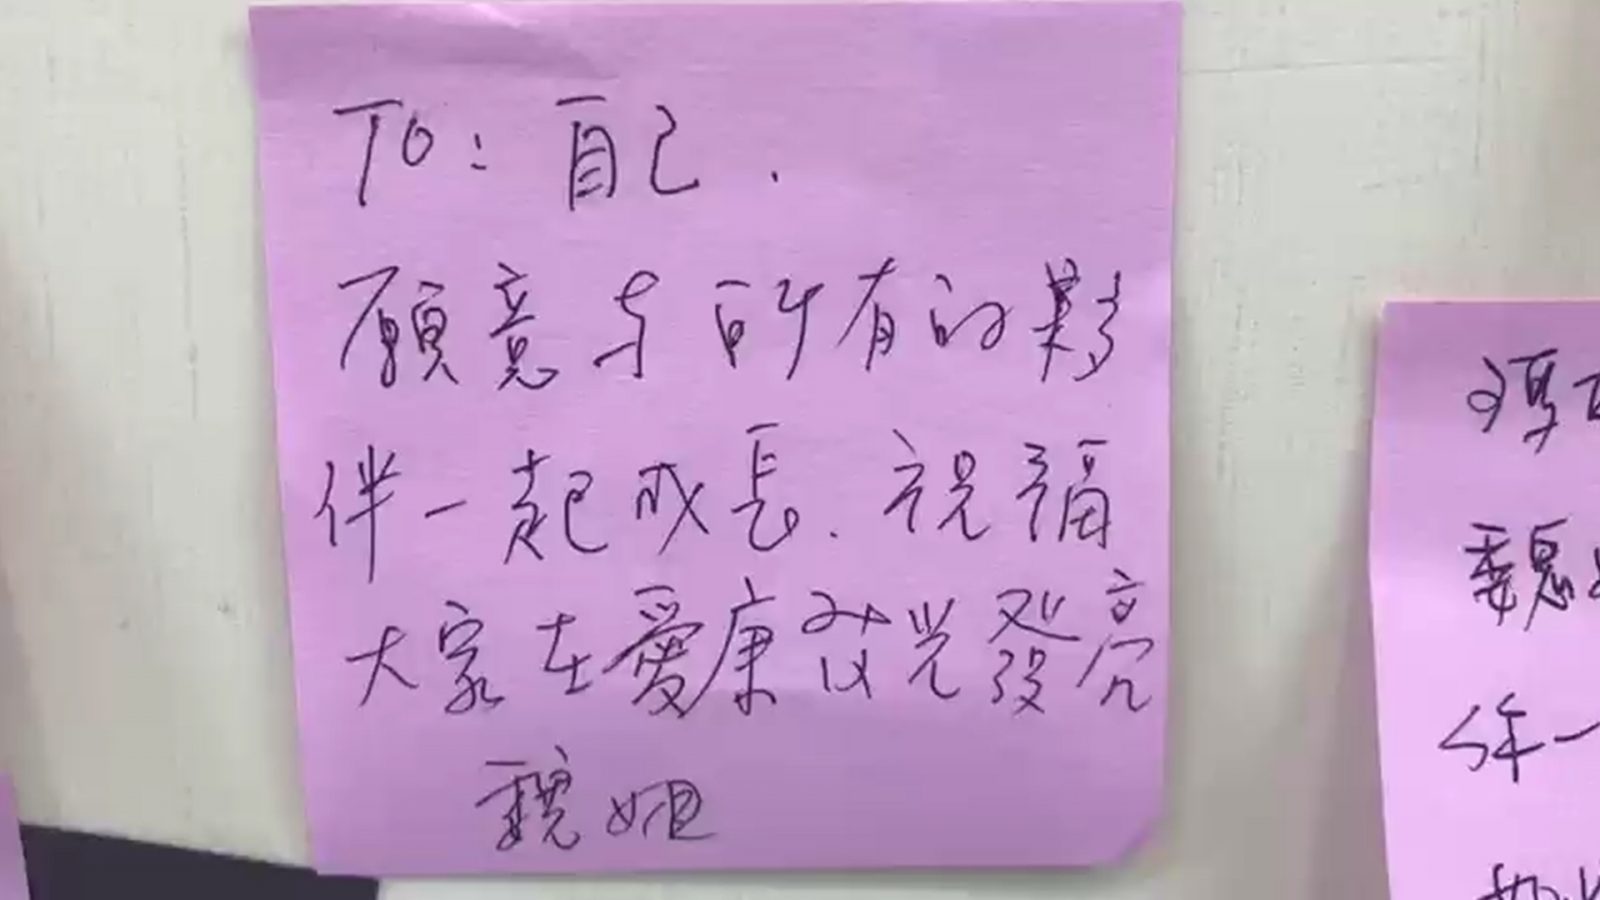 To：自己．
願意与所有的夥
伴一起成長．祝福
大家在愛康發光發亮
魏姐
魏
伴一